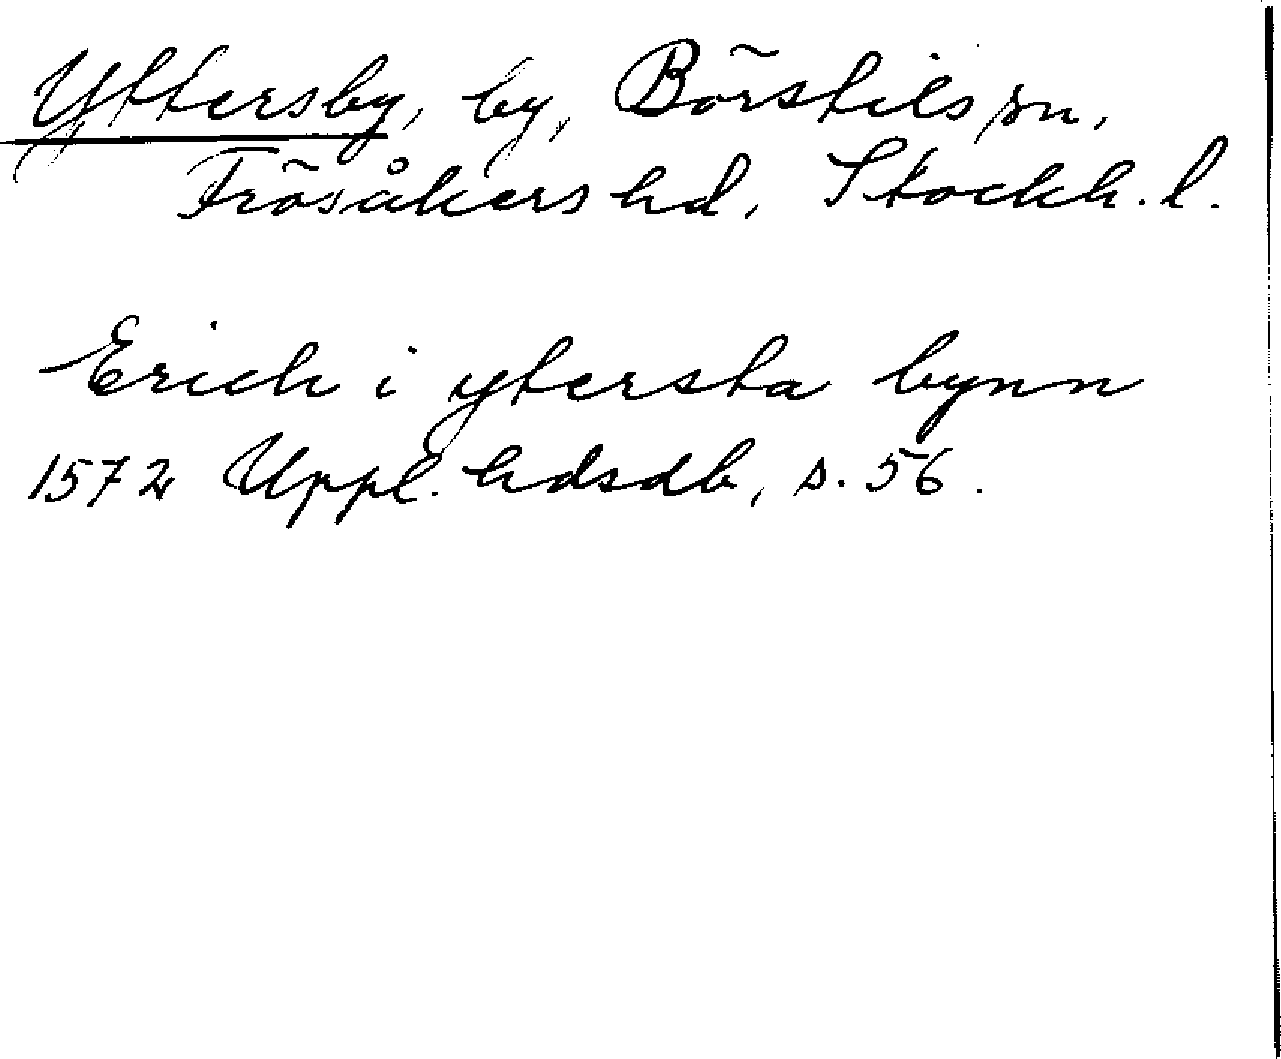 Yttersby, by, Börstils sn,
Frösåkers hd, Stockh. l.
Erich i ytersta bynn
1572 Uppl. hdsdb, s. 56.